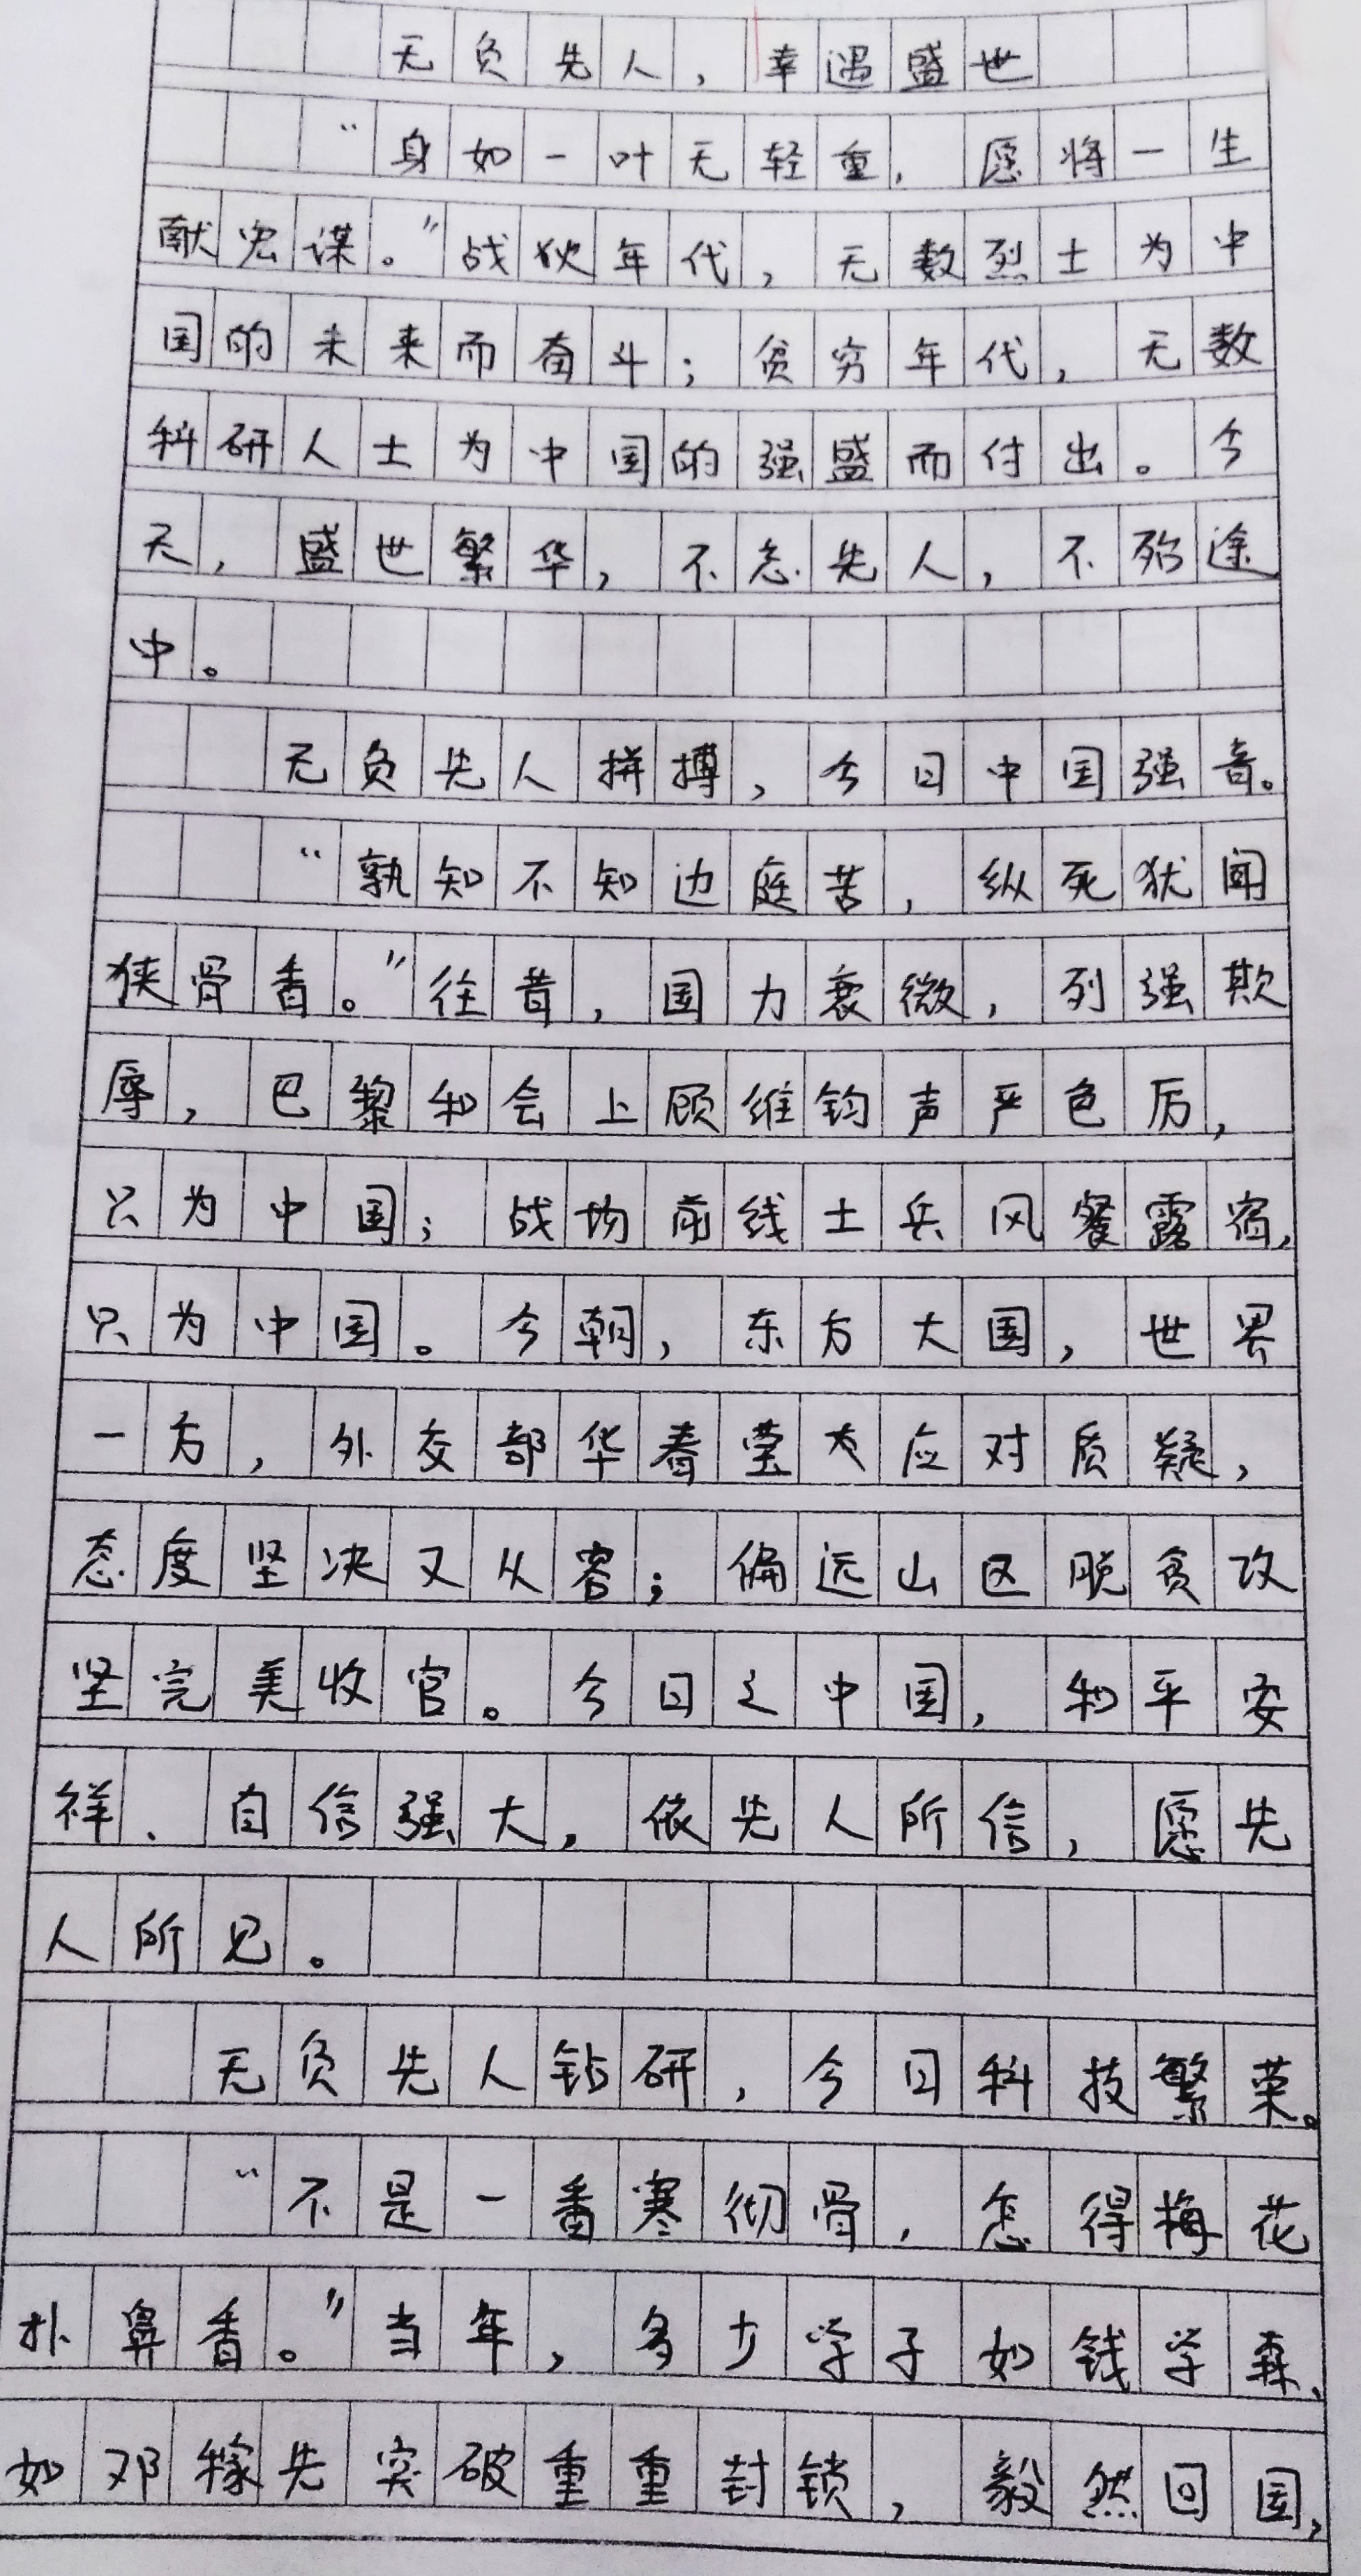 无负先人，幸遇盛世
“身如一叶无轻重，愿将一生
献宏谋。”战火年代，无数烈士为中
国的未来而奋斗；贫穷年代，无数
科研人士为中国的强盛而付出。今
天，盛世繁华，不忘先人，不殆途
中。
无负先人拼搏，今日中国强音。
“孰知不知边庭苦，纵死犹闻
侠骨香。”往昔，国力衰微，列强欺
辱，巴黎和会上顾维钧声严色厉，
只为中国；战场前线士兵风餐露宿，
只为中国。今朝，东方大国，世界
一方，外交部华春莹大应对质疑，
态度坚决又从容；偏远山区脱贫攻
坚完美收官。今日之中国，和平安
祥、自信强大，依先人所信，愿先
人所见。
无负先人钻研，今日科技繁荣。
“不是一番寒彻骨，怎得梅花
扑鼻香。”当年，多少学子如钱学森、
如邓稼先突破重重封锁，毅然回国，